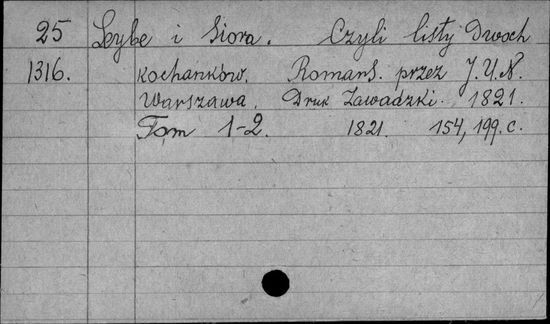 25 Leybe i Siora. Czyli listy Dwoch
1316. Kochanków. Romans. przez J. U. N.
Warszawa. Druk Zawadzki. 1821.
Tom 1-2. 1821. 154, 199. c.